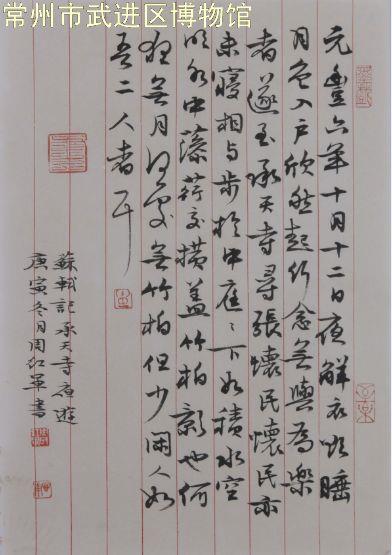 常州市武进区博物馆
元豐六年十月十二日夜解衣欲睡
月色入户欣然起行念無與為樂
者遂至承天寺尋張懷民懷民亦
未寢相与步於中庭々下如積水空
明水中藻荇交横蓋竹柏影也何
夜無月何處無竹柏但少閑人如
吾二人者耳
蘇軾記承天寺夜遊
庚寅冬月周紅軍書